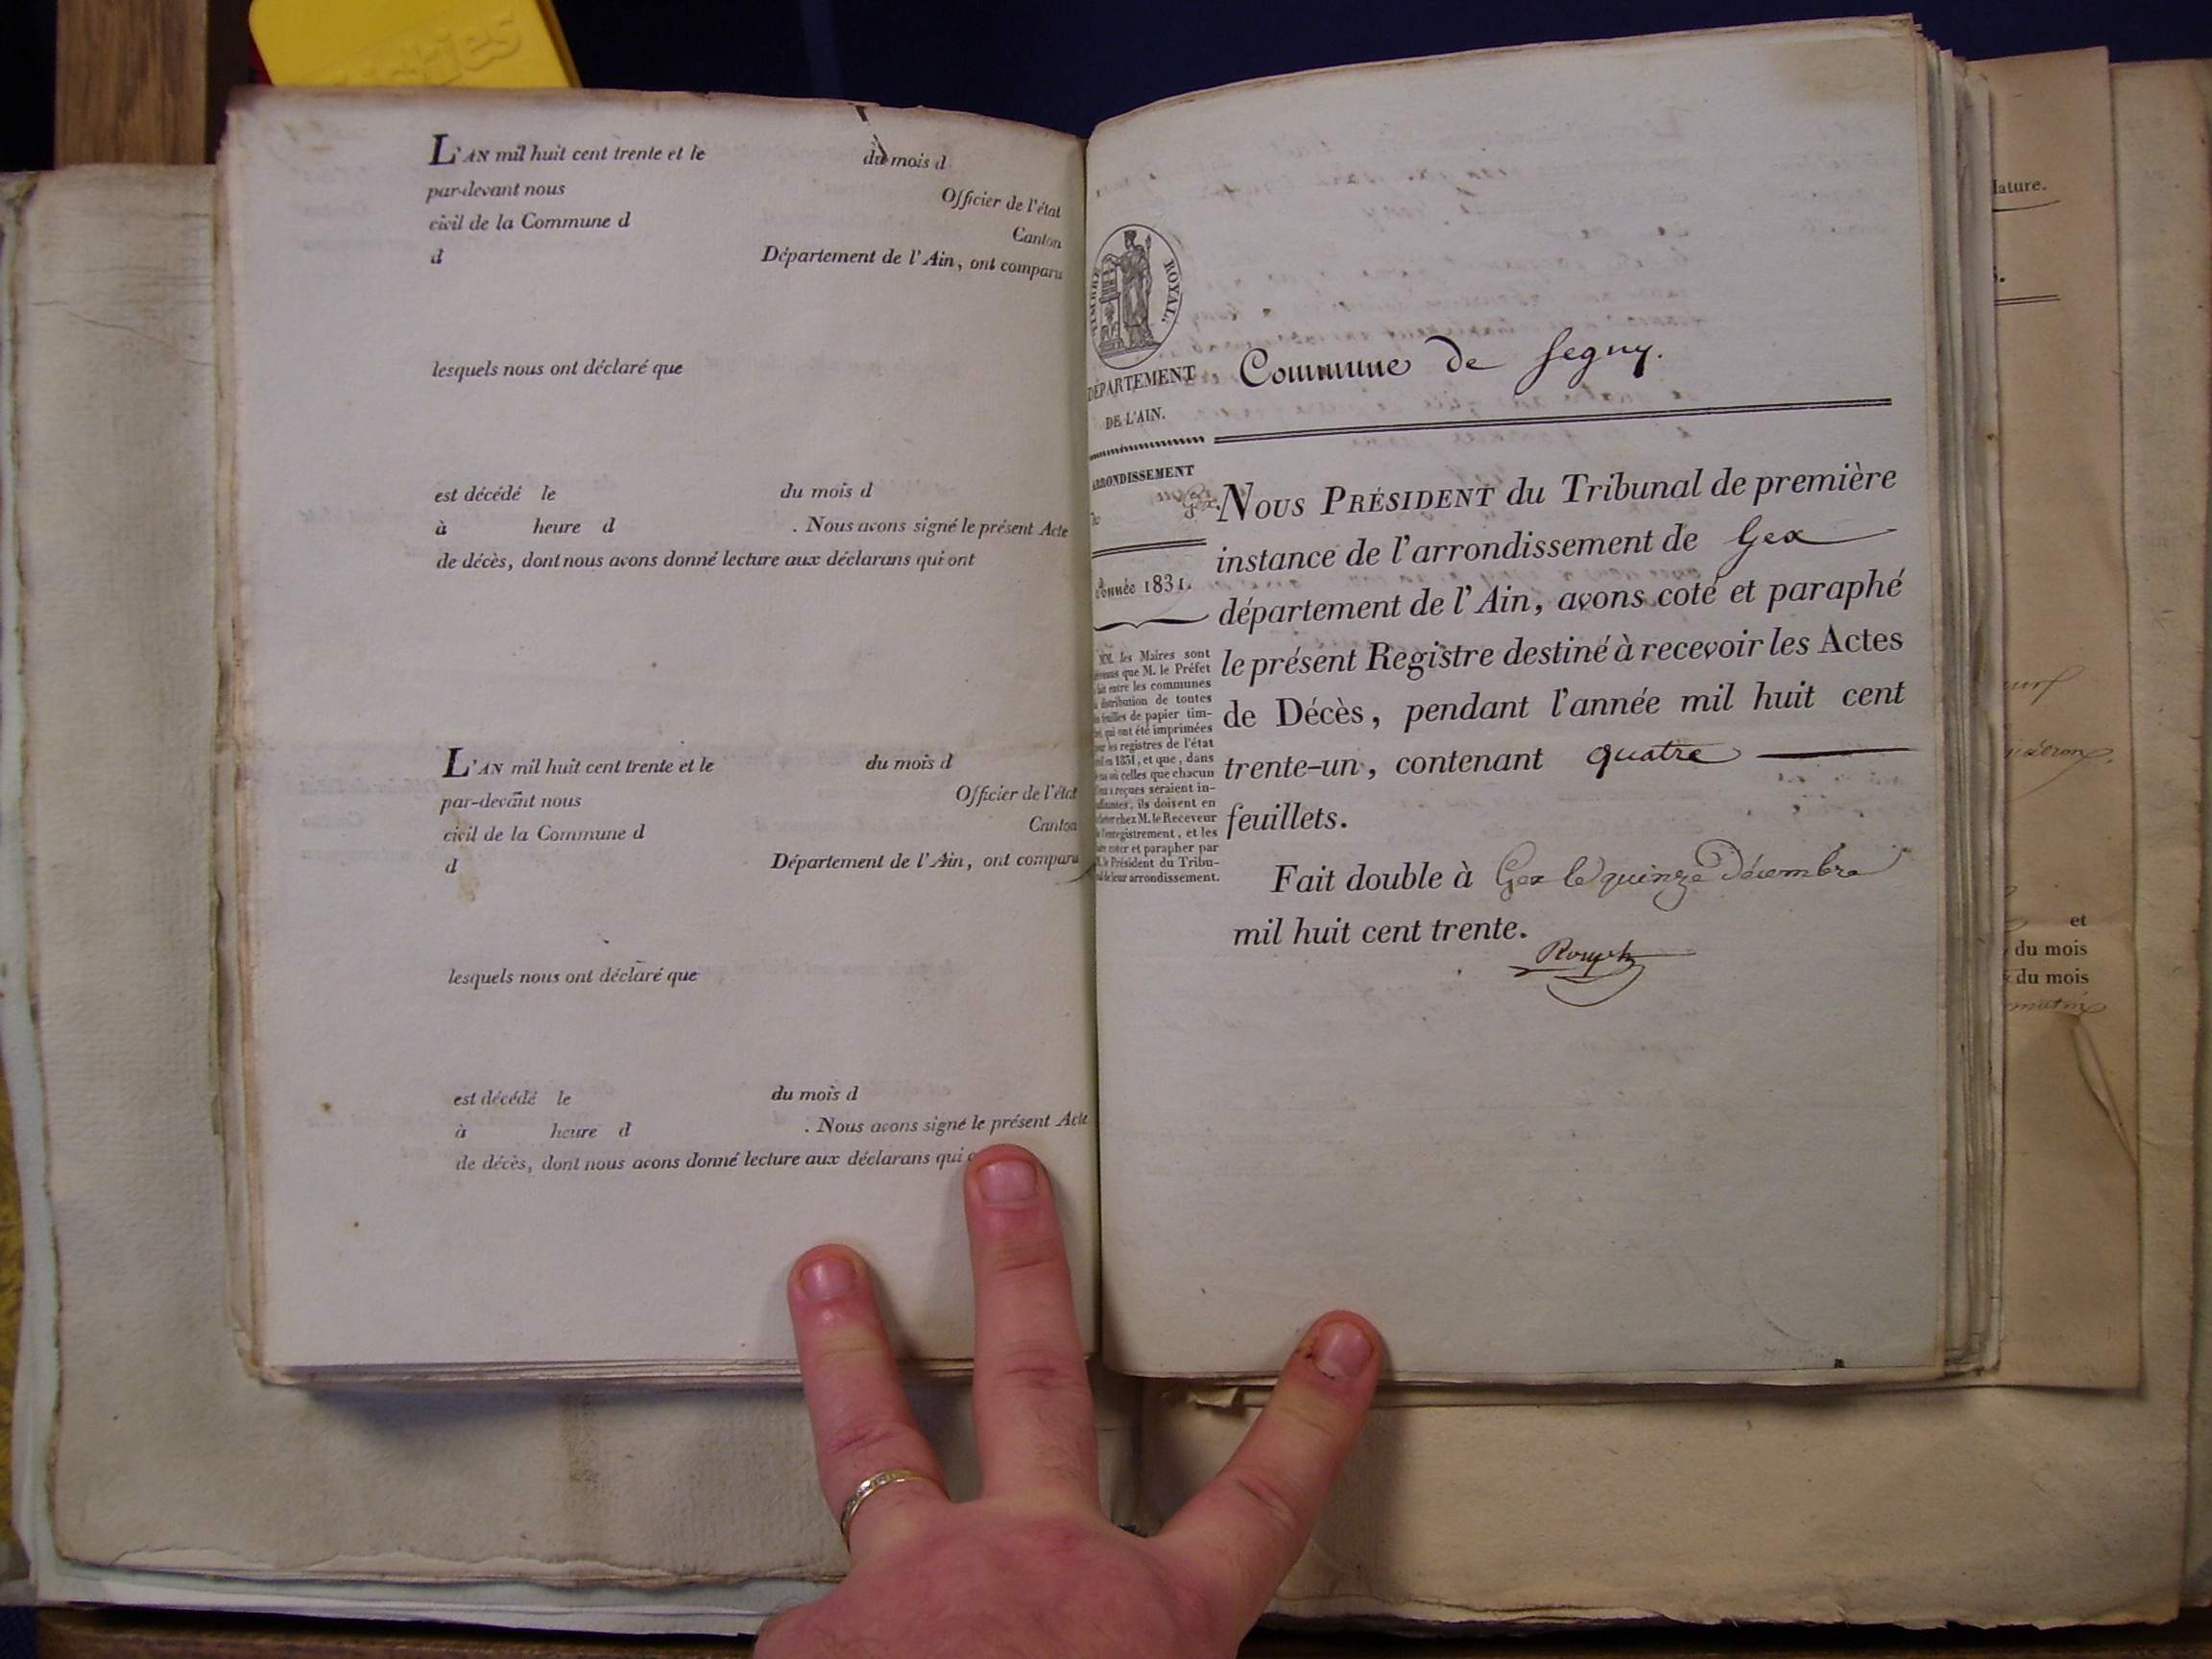 L'AN mil huit cent trente et le du mois d
par-devant nous Officier de l'état
civil de la Commune d Canton
d Département de l'Ain, ont comparu
lesquels nous ont déclaré que
est décédé le du mois d
à heure d . Nous avons signé le présent Acte
de décès, dont nous avons donné lecture aux déclarans qui ont
L'AN mil huit cent trente et le du mois d
par-devant nous Officier de l'état
civil de la Commune d Canton
d Département de l'Ain, ont comparu
lesquels nous ont déclaré que
est décédé le du mois d
à heure d . Nous avons signé le présent Acte
de décès, dont nous avons donné lecture aux déclarans qui
TIMBRE ROYAL.
DÉPARTEMENT
DE L'AIN.
ARRONDISSEMENT
Gex.
Année 1831.
MM. les Maires sont
que M. le Préfet
fait entre les communes
distribution de toutes
feuilles de papier tim-
qui ont été imprimées
les registres de l'état
en 1831, et que, dans
où celles que chacun
reçues seraient in-
ils doivent en
chez M. le Receveur
l'enregistrement, et les
coter et parapher par
le Président du Tribu-
de leur arrondissement.
Commune de Segny.
NOUS PRÉSIDENT du Tribunal de première
instance de l'arrondissement de Gex
département de l'Ain, avons coté et paraphé
le présent Registre destiné à recevoir les Actes
de Décès, pendant l'année mil huit cent
trente-un, contenant quatre
feuillets.
Fait double à Gex le quinze Décembre
mil huit cent trente.
et
du mois
du mois
matin